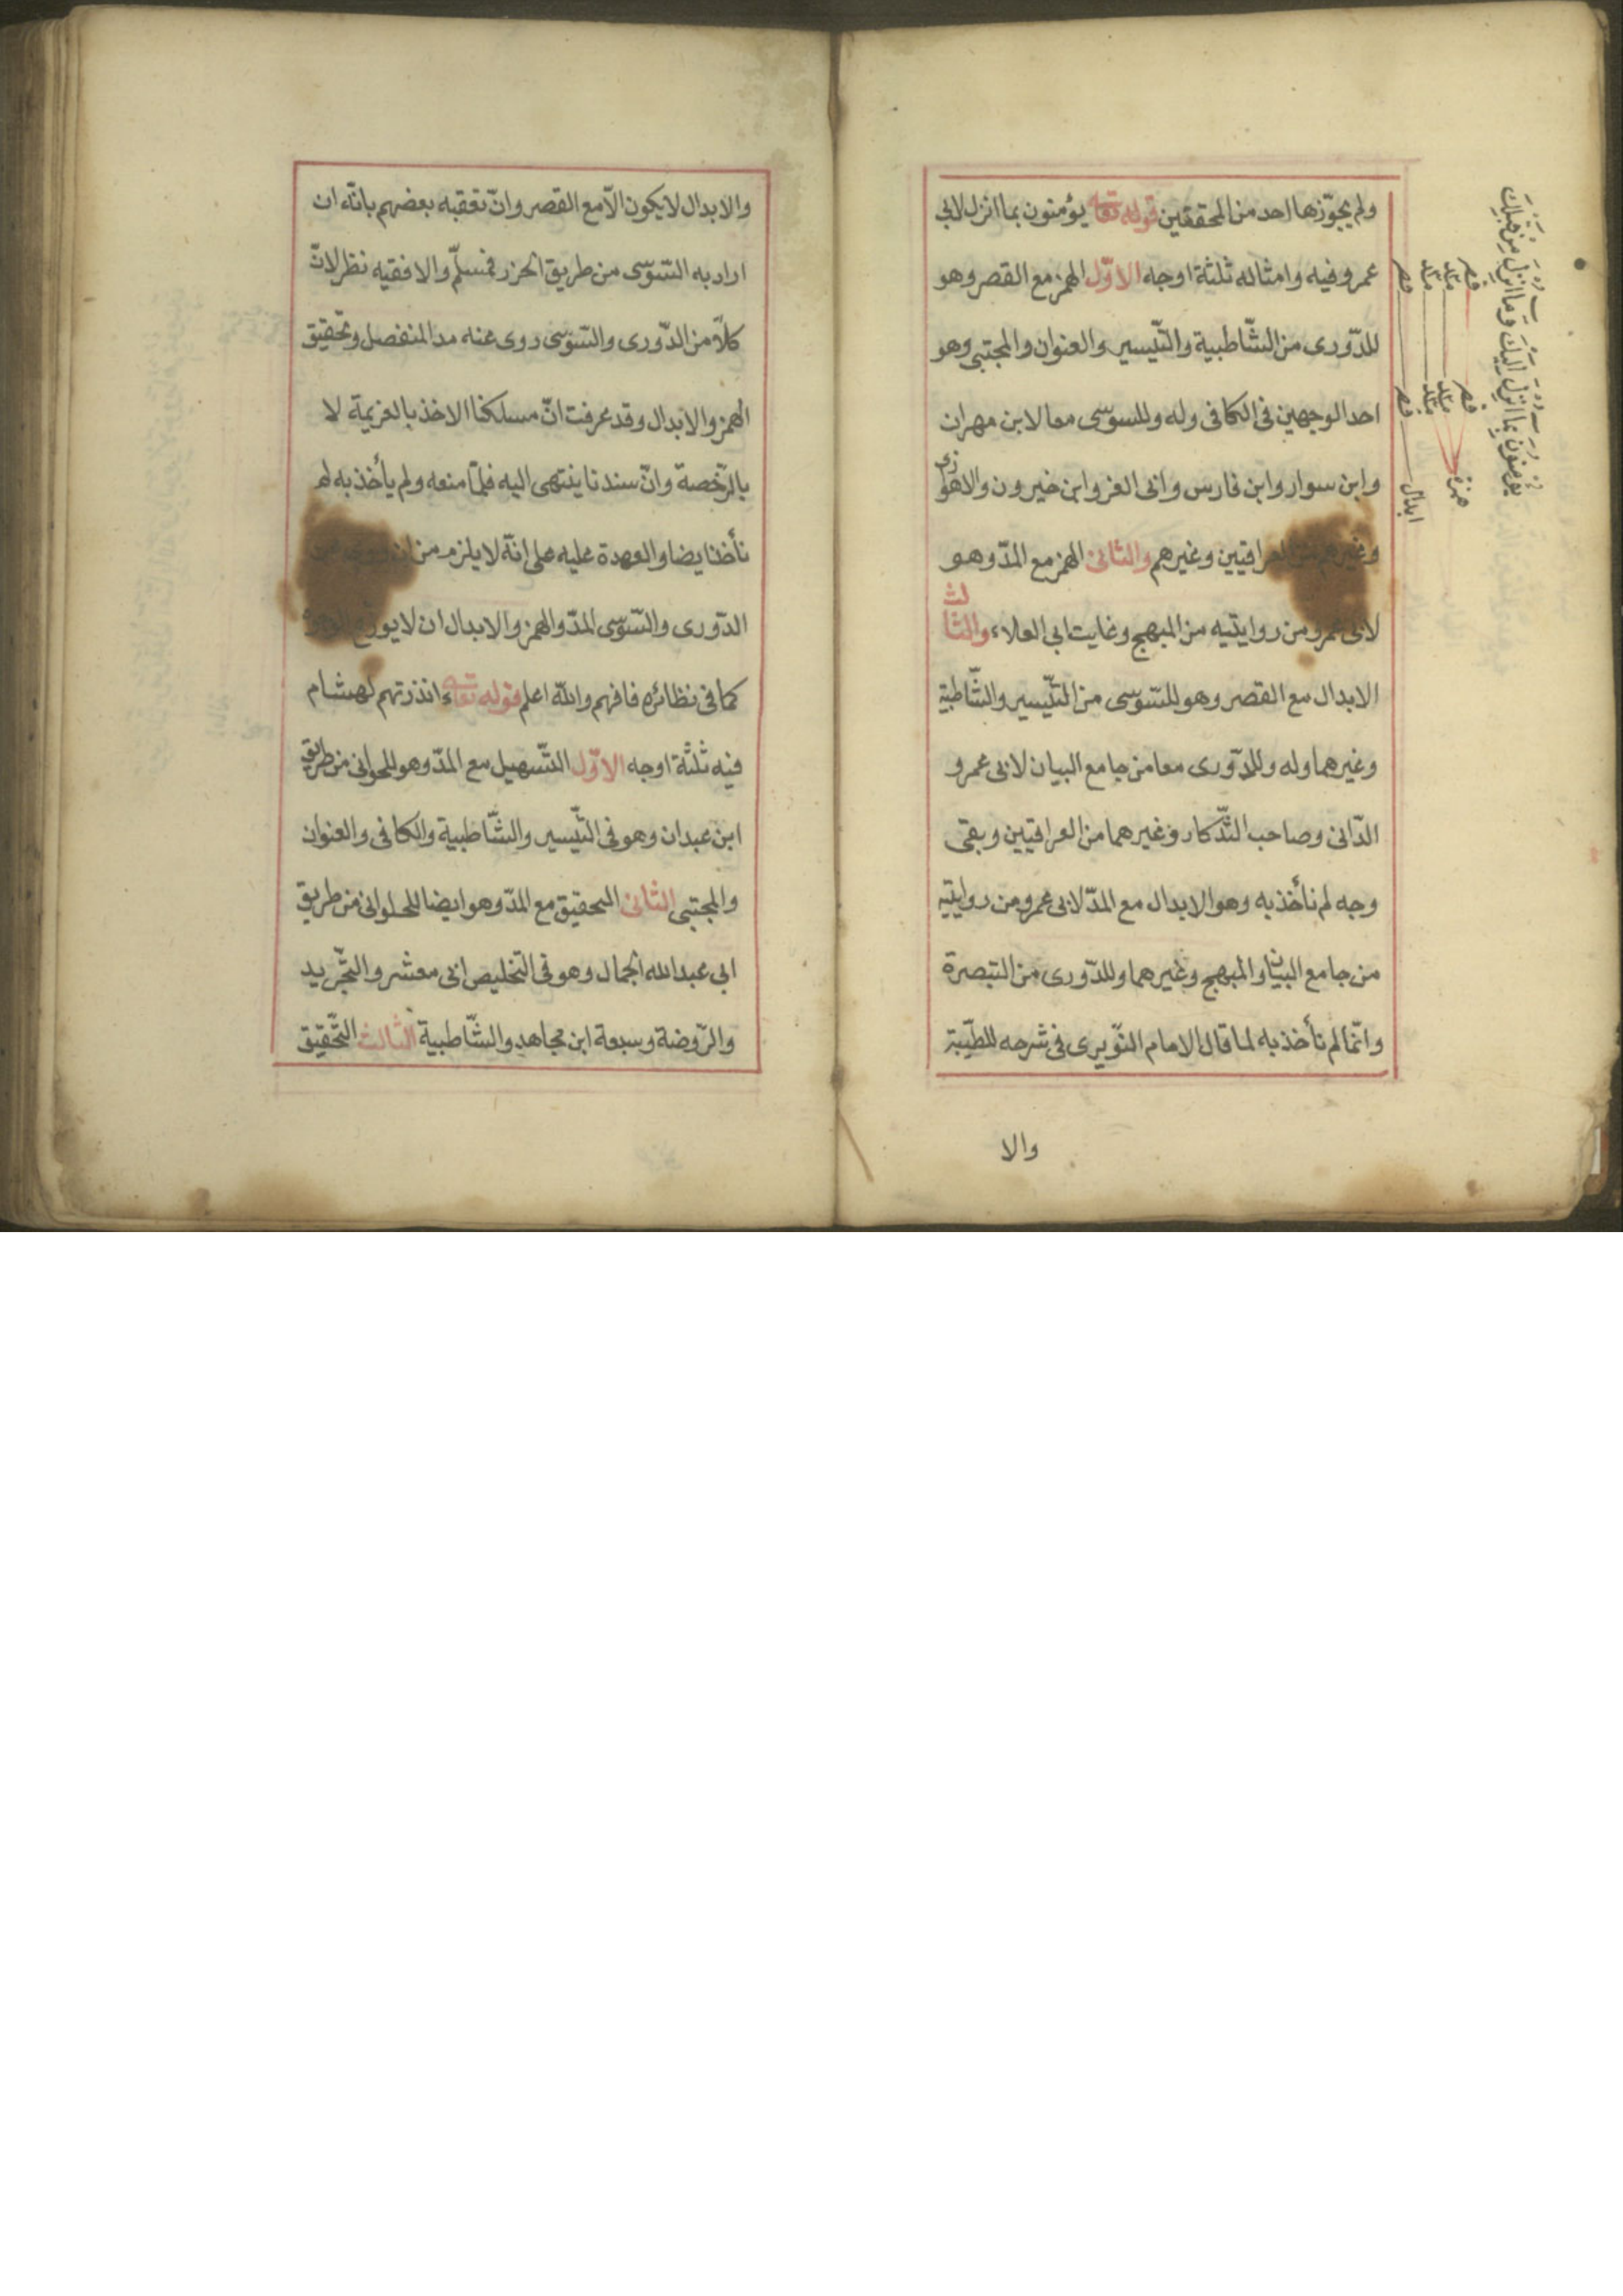 ولم يجوّزها احد من المحققين قوله تعالى يؤمنون بما انزل لابى
عمرو فيه وامثاله ثلثة اوجه الاوّل الهمز مع القصر وهو
للدّورى من الشّاطبية والتّيسير والعنوان والمجتبى وهو
احد الوجهين فى الكافى وله وللسوسى معا لابن مهران
وابن سوار وابن فارس وابى العز وابن خيرون والاهوازى
وغيرهم من العراقيين وغيرهم والثانى الهمز مع المدّ وهو
لابى عمرو من روايتيه من المبهج وغايت ابى العلاء والثالث
الابدال مع القصر وهو للسّوسى من التّيسير والشّاطبية
وغيرهما وله وللدّورى معا من جامع البيان لابى عمرو
الدّانى وصاحب التّذكار وغيرهما من العراقيين وبقى
وجه لم نأخذ به وهو الابدال مع المدّ لابى عمرو من روايتيه
من جامع البيان والمبهج وغيرهما وللدّورى من التبصرة
وانّما لم نأخذ به لما قال الامام النّويرى فى شرحه للطّيبة
والا
يؤمنون بما انزل اليك وما انزل من قبلك
قصر قصر
مد مد
مد مد
قصر قصر
همزة
ابدال
والابدال لا يكون الّا مع القصر وانّ تعقبه بعضهم بانّه ان
اراد به السّوسى من طريق الحرز فمسلّم والا ففيه نظر لانّ
كلّا من الدّورى والسّوسى روى عنه مد المنفصل وتحقيق
الهمز والابدال وقد عرفت انّ مسلكنا الاخذ بالعزيمة لا
بالرّخصة وانّ سندنا ينتهى اليه فلمّا منعه ولم يأخذ به لم
نأخذ ايضا والعهدة عليه على انّه لا يلزم من ان
الدّورى والسّوسى المدّ والهمز والابدال ان لا يوزّع
كما فى نظائره فافهم والله اعلم قوله تعالى ءانذرتهم لهشام
فيه ثلثة اوجه الاوّل التّسهيل مع المدّ وهو للحوانى من طريق
ابن عبدان وهو فى التّيسير والشّاطبية والكافى والعنوان
والمجتبى الثانى التحقيق مع المدّ وهو ايضا للحلوانى من طريق
ابى عبد الله الجمال وهو فى التخليص ابى معشر والتّجريد
والرّوضة وسبعة ابن مجاهد والشّاطبية الثالث التّحقيق